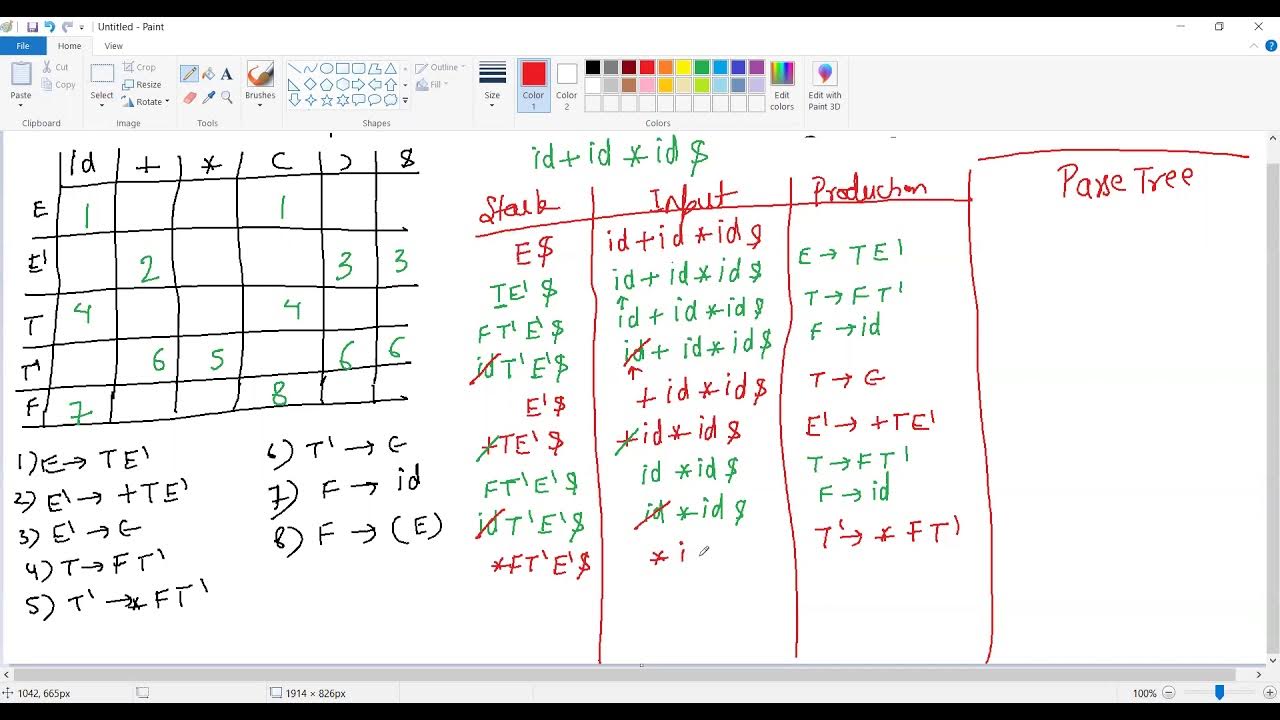 Untitled - Paint
File Home View
Paste Cut Copy
Clipboard
Select Crop Resize Rotate
Image
Tools
Brushes
Outline Fill
Shapes
Size
Color 1 Color 2
Edit colors
Colors
Edit with Paint 3D
id + * ( ) $
E 1 1
E' 2 3 3
T 4 4
T' 6 5 6 6
F 7 8
1) E → TE'
2) E' → +TE'
3) E' → ϵ
4) T → FT'
5) T' → *FT'
6) T' → ϵ
7) F → id
8) F → (E)
id+id *id $
Stack Input Production
E$ id+id *id $
TE' $ id + id* id $ E → TE'
FT'E'$ id + id *id $ T → FT'
id T'E'$ id + id* id $ F → id
E'$ + id *id$ T → ϵ
+TE'$ +id* id $ E' → +TE'
FT'E'$ id *id $ T → FT'
id T'E'$ id * id $ F → id
*FT'E'$ * i T' → * FT'
Parse Tree
1042, 665px
1914 × 826px
100%